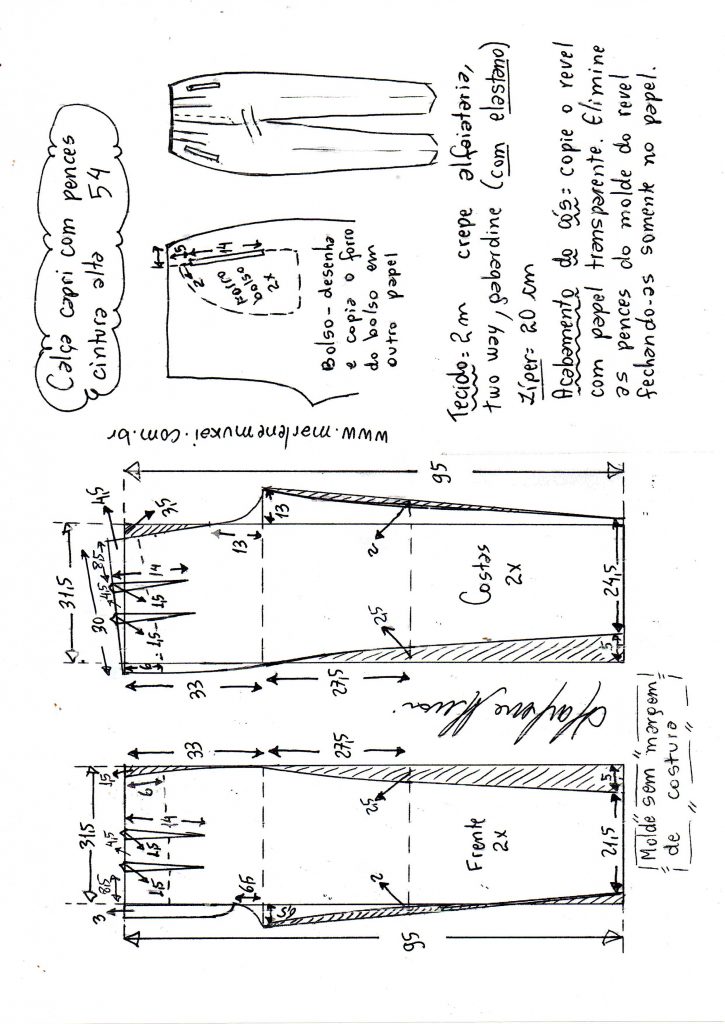 Calça capri com pences
e cintura alta 54
5
14
2
2
Forro
bolso
2x
Bolso - desenha
e copia o forro
do bolso em
outro papel
Tecido = 2 m crepe alfaiataria,
two way, gabardine (com elastano)
Zíper = 20 cm
Acabamento do cós = copie o revel
com papel transparente. Elimine
as pences do molde do revel
fechando-as somente no papel.
www.marlenemukai.com.br
95
31,5
4,5
3,5
30
8,5
4,5
14
1,5
1,5
6
13
13
33
27,5
2
2,5
Costas
2x
24,5
5
33
27,5
1,5
6
31,5
14
4,5
1,5
1,5
8,5
3
6,5
2,5
2
Frente
2x
21,5
5
95
Molde sem margem
de costura